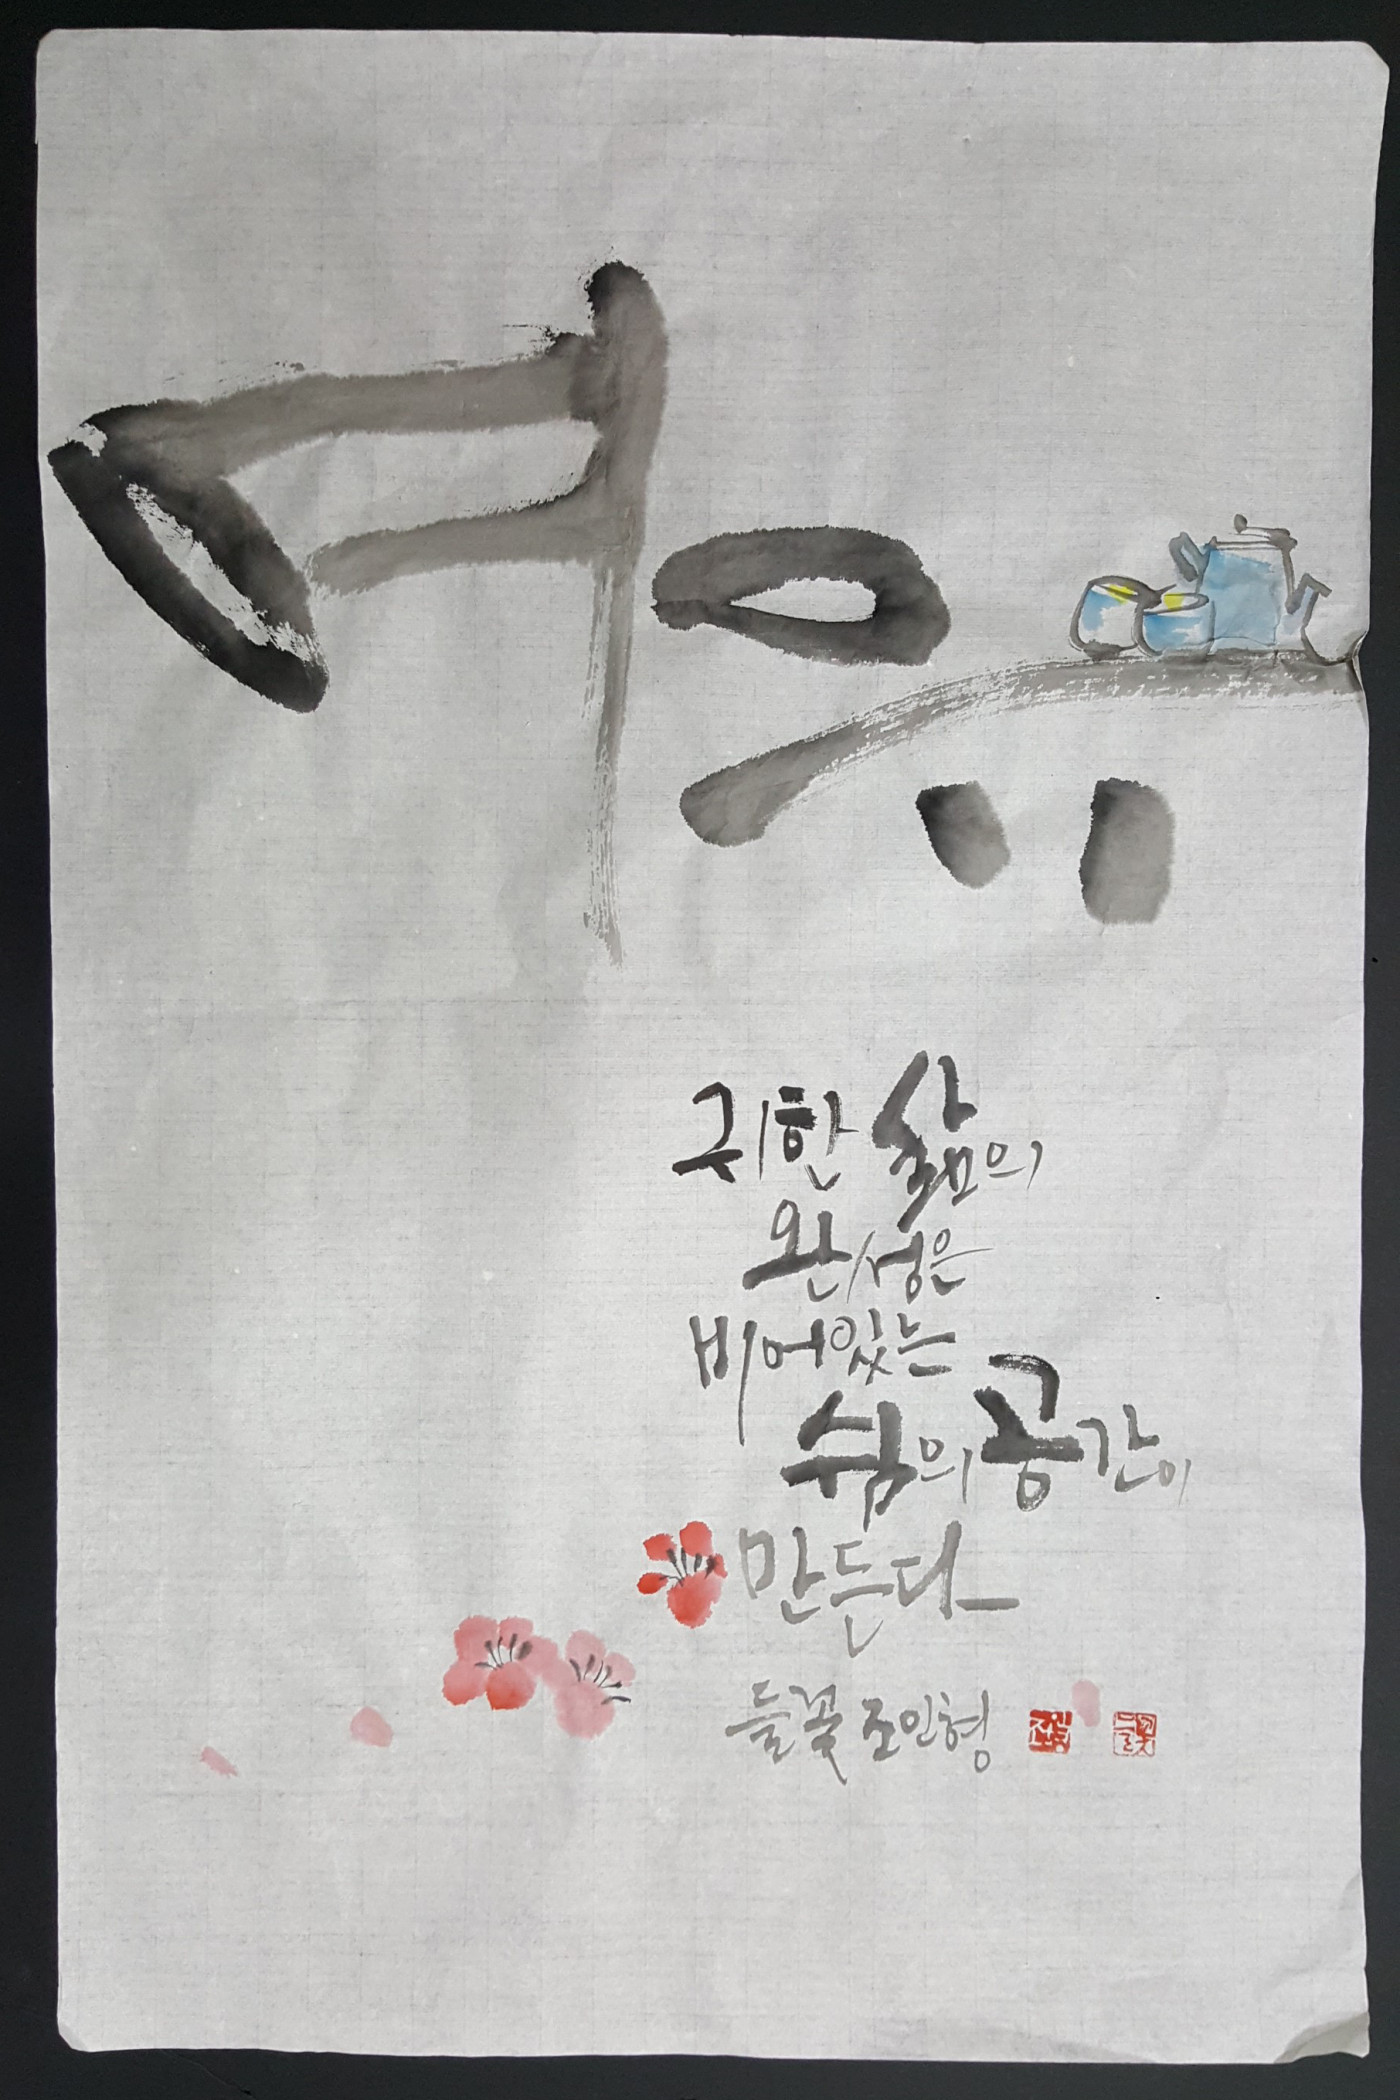 여유
귀한 삶의
완성은
비어있는
쉼의 공간이
만든다
들꽃 조인형 조인형 들꽃